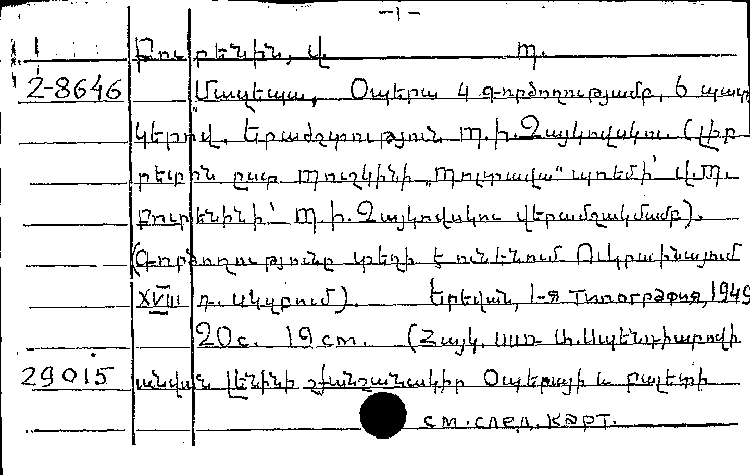 -1-
Բուրենին, Վ. Պ.
2-8646 Մազեպա, Օպերա 4 գործողությամբ, 6 պատ
կերով. Երաժշտություն Պ.Ի.Չայկովսկու. (Լիբ
րետին ըստ Պուշկինի „Պոլտավա" պոեմի՝ Վ.Պ.
Բուրենինի՝ Պ.Ի.Չայկովսկու վերամշակմամբ).
(Գործողությունը տեղի է ունենում Ուկրաինայում
XVIII դ. սկզբում). Երևան, 1-я Типография, 1949
20с. 19cm. (Հայկ. ՍՍՌ Ա.Սպենդիարովի
29015 անվան Լենինի շքանշանակիր Օպերայի և բալետի
см.след.карт.